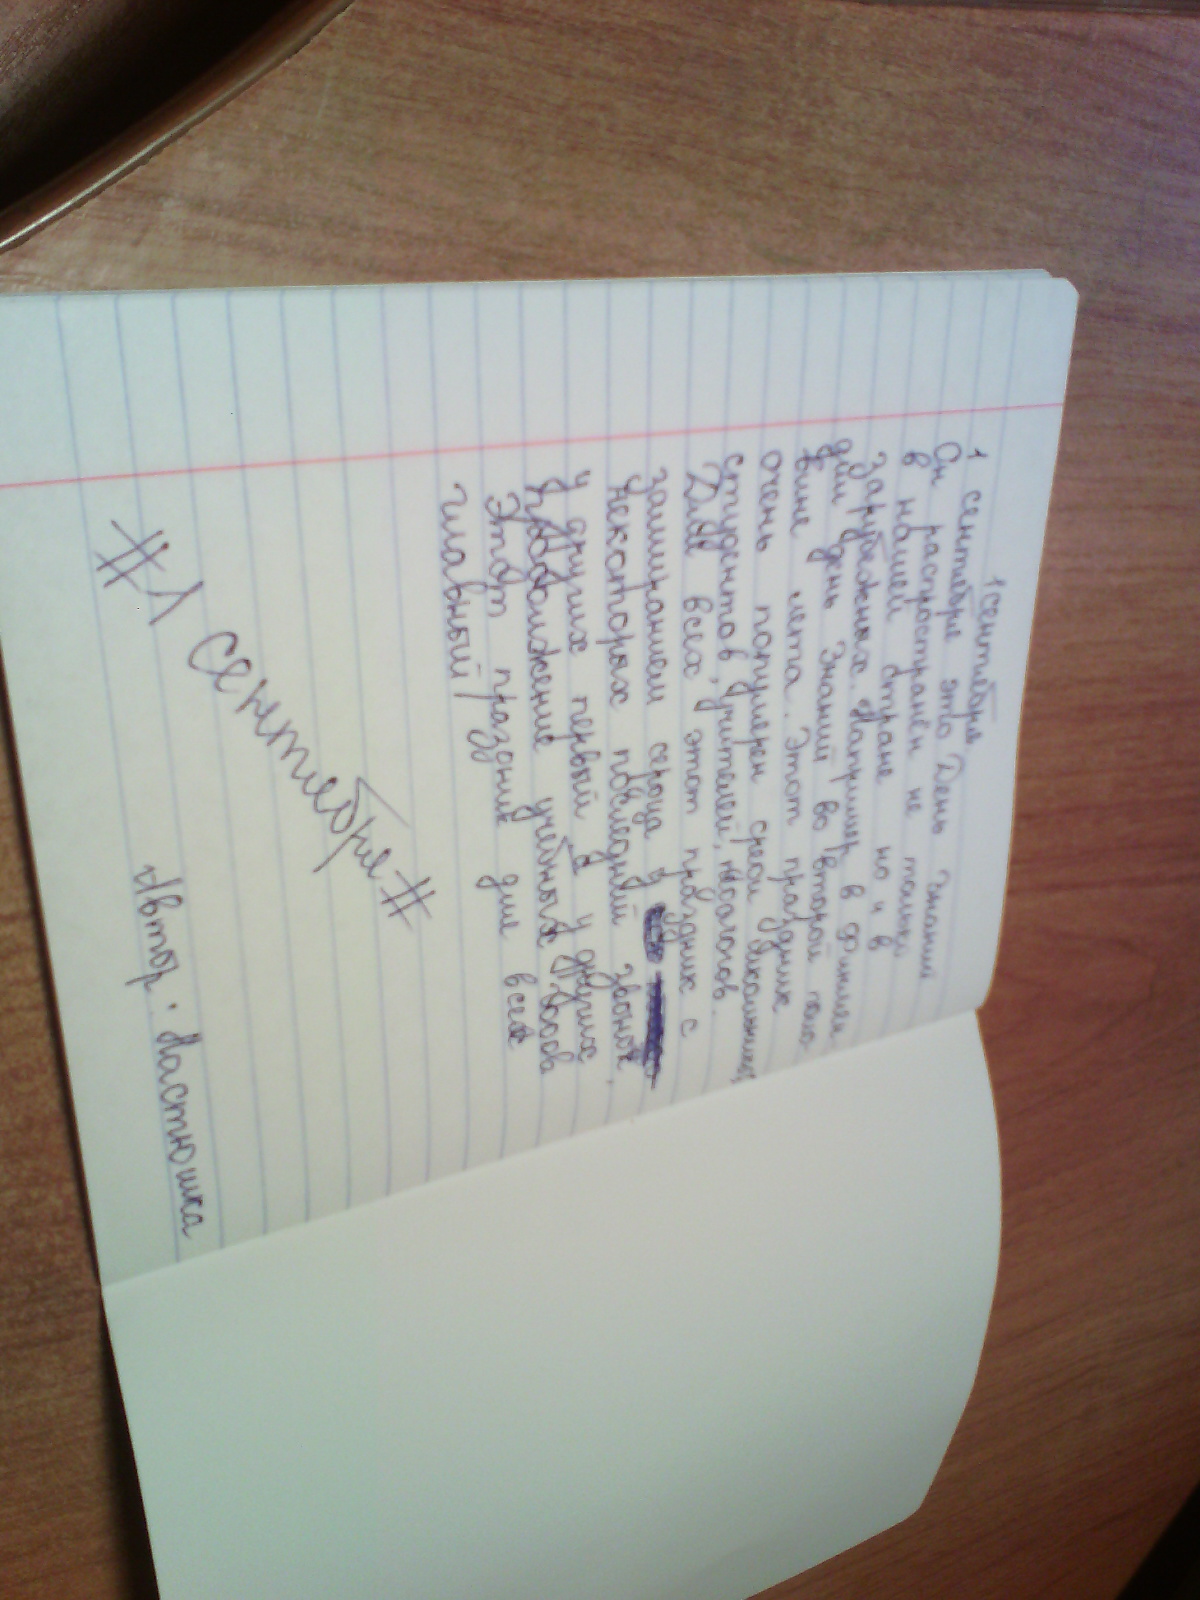 1 сентября.
1 сентября это День знаний
Он распространён не только
в нашей стране но и в
зарубежных. Например в Финлян
дии день Знаний во второй поло
вине лета. Этот праздник
очень популярен среди школьников,
студентов, учителей, педагогов.
Для всех этот праздник с
замиранием сердца у
некоторых последний звонок,
у других первый а у других
продолжение учебных годов
Этот праздник для всех
главный!
#1 сентября#
Автор: Настюшка